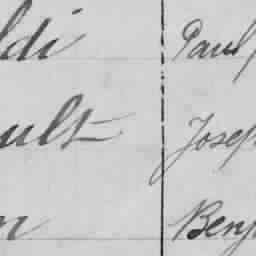 ldi Paul
ult Josep
n Benj